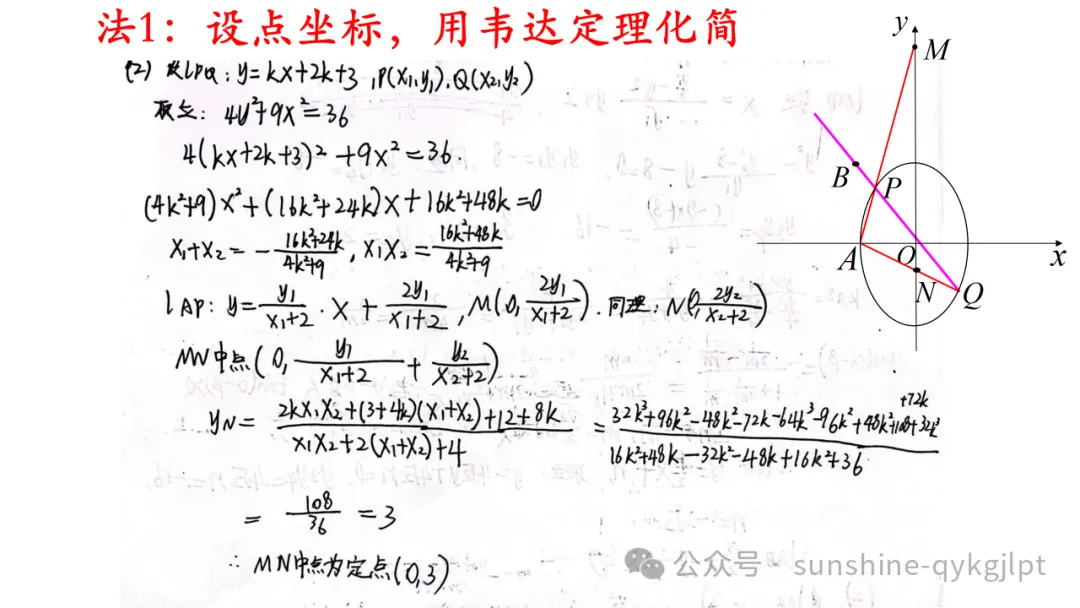 法1：设点坐标，用韦达定理化简
(2) 设lPQ：y=kx+2k+3，P(x₁,y₁)，Q(x₂,y₂)
联立：4y²+9x²=36
4(kx+2k+3)²+9x²=36
(4k²+9)x²+(16k²+24k)x+16k²+48k=0
x₁+x₂=-\frac{16k²+24k}{4k²+9}，x₁x₂=\frac{16k²+48k}{4k²+9}
lAP：y=\frac{y₁}{x₁+2}·x+\frac{2y₁}{x₁+2}，M(0,\frac{2y₁}{x₁+2})．同理：N(0,\frac{2y₂}{x₂+2})
MN中点(0,\frac{y₁}{x₁+2}+\frac{y₂}{x₂+2})
yN=\frac{2kx₁x₂+(3+4k)(x₁+x₂)+12+8k}{x₁x₂+2(x₁+x₂)+4}=\frac{32k³+96k²-48k²-72k-64k³-96k²+48k²+108+32k³+72k}{16k²+48k-32k²-48k+16k²+36}
=\frac{108}{36}=3
∴MN中点为定点(0,3)
y
M
B
P
A
O
x
N
Q
公众号·sunshine-qykgjlpt